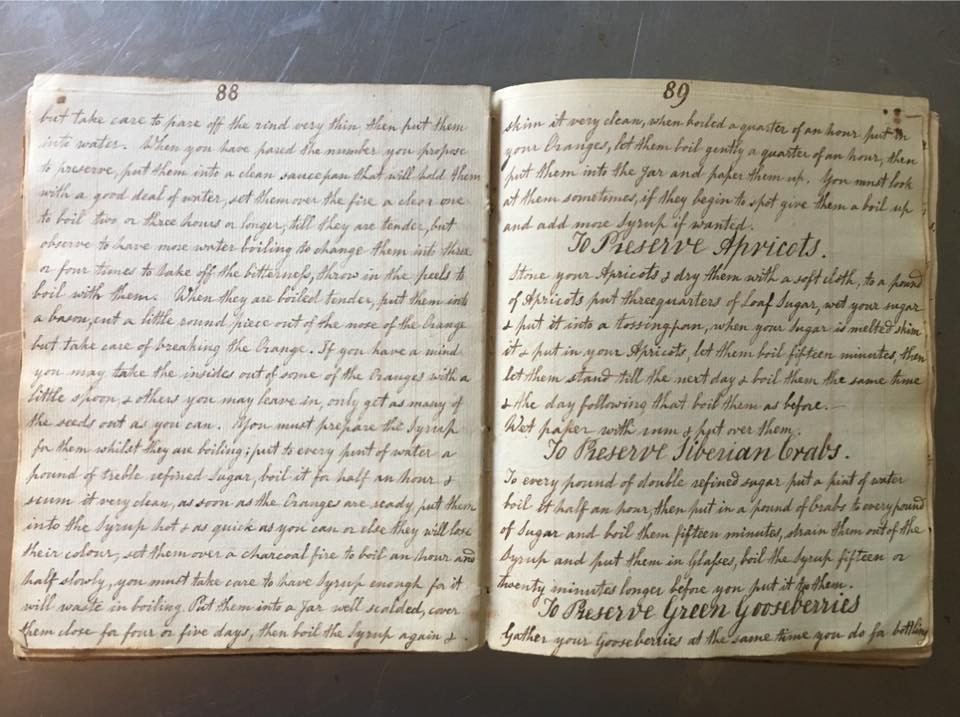 88
but take care to pare off the rind very thin, then put them
into water. When you have pared the number you propose
to preserve, put them into a clean saucepan that will hold them
with a good deal of water, set them over the fire a clear one
to boil two or three hours or longer, till they are tender, but
observe to have more water boiling to change them into three
or four times to take off the bitterness, throw in the peels to
boil with them. When they are boiled tender, put them into
a bason, cut a little round piece out of the nose of the Orange
but take care of breaking the Orange. If you have a mind
you may take the insides out of some of the Oranges with a
little spoon, & others you may leave in, only get as many of
the seeds out as you can. You must prepare the Syrup
for them whilst they are boiling; put to every pint of water a
pound of treble refined Sugar, boil it for half an hour &
scum it very clean, as soon as the Oranges are ready, put them
into the Syrup hot & as quick as you can or else they will lose
their colour, set them over a charcoal fire to boil an hour and
half slowly, you must take care to have Syrup enough for it
will waste in boiling. Put them into a Jar well scalded, cover
them close for four or five days, then boil the Syrup again &
89
skim it very clean, when boiled a quarter of an hour put in
your Oranges, let them boil gently a quarter of an hour, then
put them into the Jar and paper them up. You must look
at them sometimes, if they begin to spot give them a boil up
and add more Syrup if wanted.
To Preserve Apricots.
Stone your Apricots & dry them with a soft cloth, to a pound
of Apricots put threequarters of Loaf Sugar, wet your sugar
& put it into a tossingpan, when your Sugar is melted skim
it & put in your Apricots, let them boil fifteen minutes, then
let them stand till the next day & boil them the same time
& the day following that boil them as before.
Wet paper with rum & put over them.
To Preserve Siberian Crabs.
To every pound of double refined sugar put a pint of water
boil it half an hour, then put in a pound of Crabs to every pound
of Sugar and boil them fifteen minutes, strain them out of the
Syrup and put them in Glasses, boil the Syrup fifteen or
twenty minutes longer before you put it to them.
To Preserve Green Gooseberries
Gather your Gooseberries at the same time you do for bottling